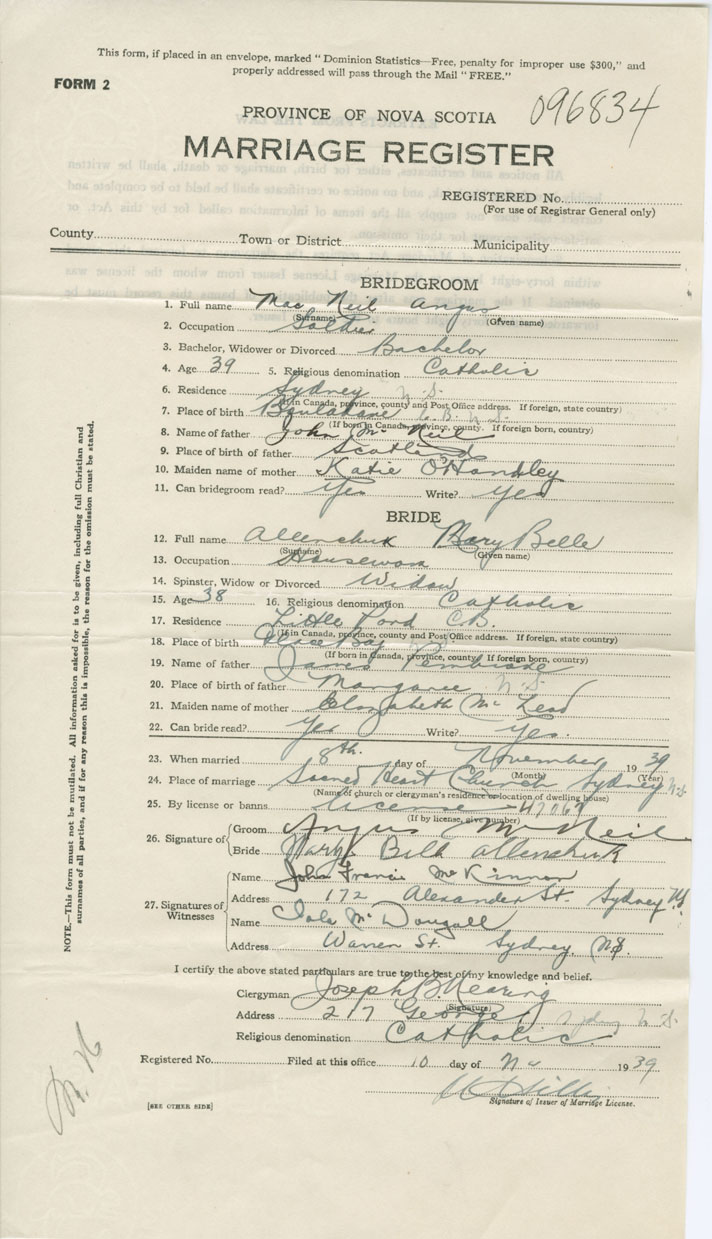 This form, if placed in an envelope, marked "Dominion Statistics—Free, penalty for improper use $300," and
properly addressed will pass through the Mail "FREE."
FORM 2
PROVINCE OF NOVA SCOTIA 096834
MARRIAGE REGISTER
REGISTERED No.
(For use of Registrar General only)
County Town or District Municipality
BRIDEGROOM
1. Full name Mac Neil Angus
(Surname) (Given name)
2. Occupation Soldier
3. Bachelor, Widower or Divorced Bachelor
4. Age 39 5. Religious denomination Catholic
6. Residence Sydney N.S.
(If in Canada, province, county and Post Office address. If foreign, state country)
7. Place of birth C.B. N.S.
(If born in Canada, province, county. If foreign born, country)
8. Name of father John Mc Neil
9. Place of birth of father Scotland
10. Maiden name of mother Katie O'Handley
11. Can bridegroom read? Yes Write? Yes
BRIDE
12. Full name Allenchuk Mary Belle
(Surname) (Given name)
13. Occupation
14. Spinster, Widow or Divorced Widow
15. Age 38 16. Religious denomination Catholic
17. Residence Little Lord C.B.
(If in Canada, province, county and Post Office address. If foreign, state country)
18. Place of birth Glace Bay
(If born in Canada, province, county. If foreign born, country)
19. Name of father James
20. Place of birth of father Margaree N.S.
21. Maiden name of mother Elizabeth Mc Leod
22. Can bride read? Yes Write? Yes.
23. When married 8th. day of November 1939
(Month) (Year)
24. Place of marriage Sacred Heart Church Sydney N.S.
(Name of church or clergyman's residence or location of dwelling house)
25. By license or banns license 47069
(If by license, give number)
26. Signature of Groom Angus McNeil
Bride Mary Bell Allenchuk
27. Signatures of Witnesses
Name John Francis McKinnon
Address 172 Alexander St. Sydney N.S.
Name McDougall
Address Warren St. Sydney, N.S.
I certify the above stated particulars are true to the best of my knowledge and belief.
Clergyman Joseph B. Nearing
(Signature)
Address 217 George Sydney N.S.
Religious denomination Catholic.
Registered No. Filed at this office 10 day of Nov 1939
Signature of Issuer of Marriage License.
[SEE OTHER SIDE]
NOTE.—This form must not be mutilated. All information asked for is to be given, including full Christian and
surnames of all parties, and if for any reason this is impossible, the reason for the omission must be stated.